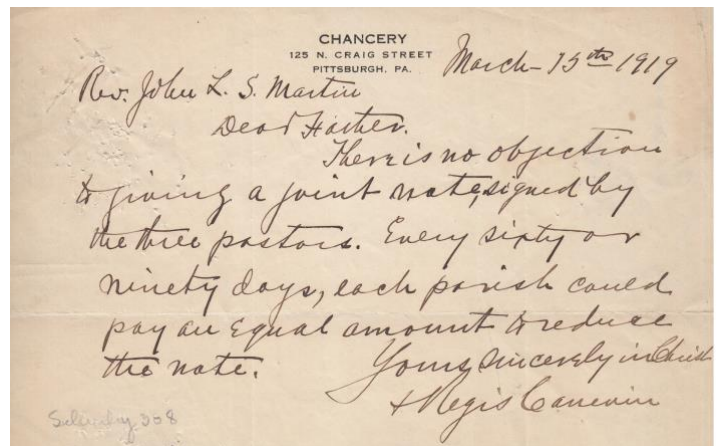 CHANCERY
125 N. CRAIG STREET
PITTSBURGH, PA.
March 15th 1919
Rev. John L. S. Martin
Dear Father.
There is no objection
to giving a joint note, signed by
the three pastors. Every sixty or
ninety days, each parish could
pay an equal amount to reduce
the note.
Yours sincerely in Christ
+ Regis Canevin
358